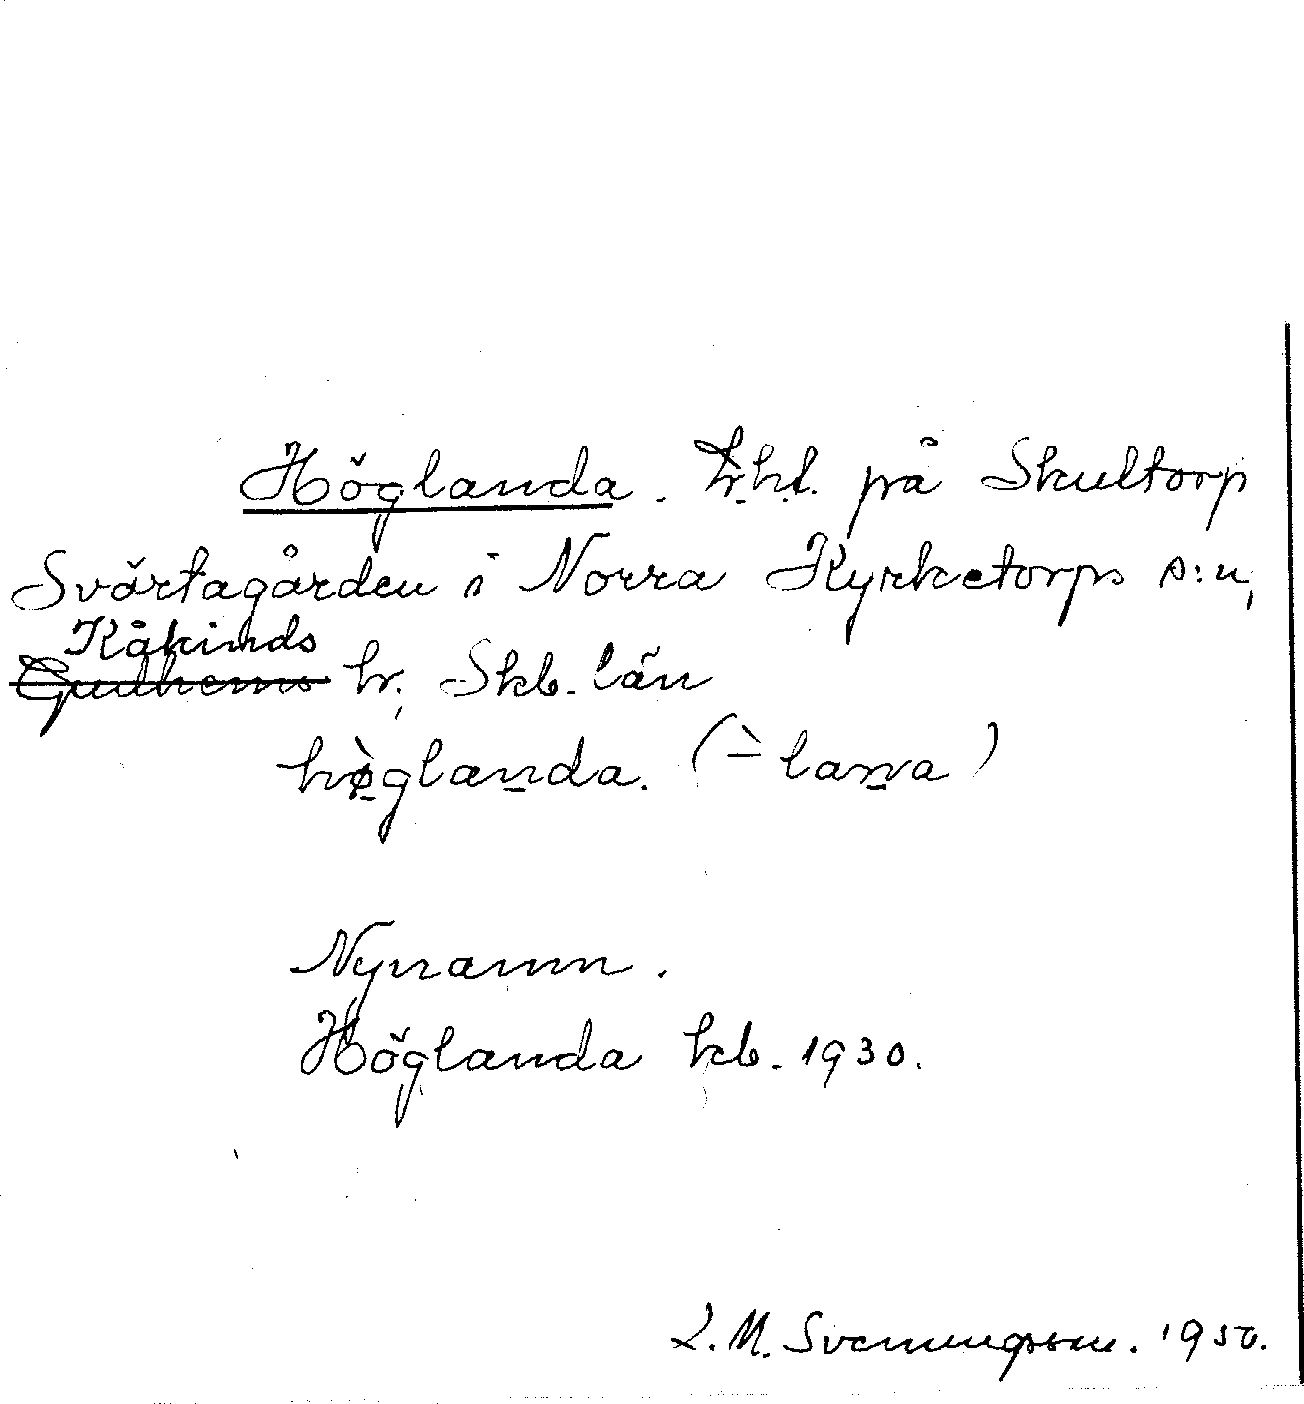 Höglanda. hl. på Skultorp
Svärtagården i Norra Kyrketorps s:n,
Kåkinds
Gudhems hr, Skb. län
hø̀glanda. (-̀ lana)
Nynamn.
Höglanda kb. 1930.
L. M. Svenungsson. 1950.